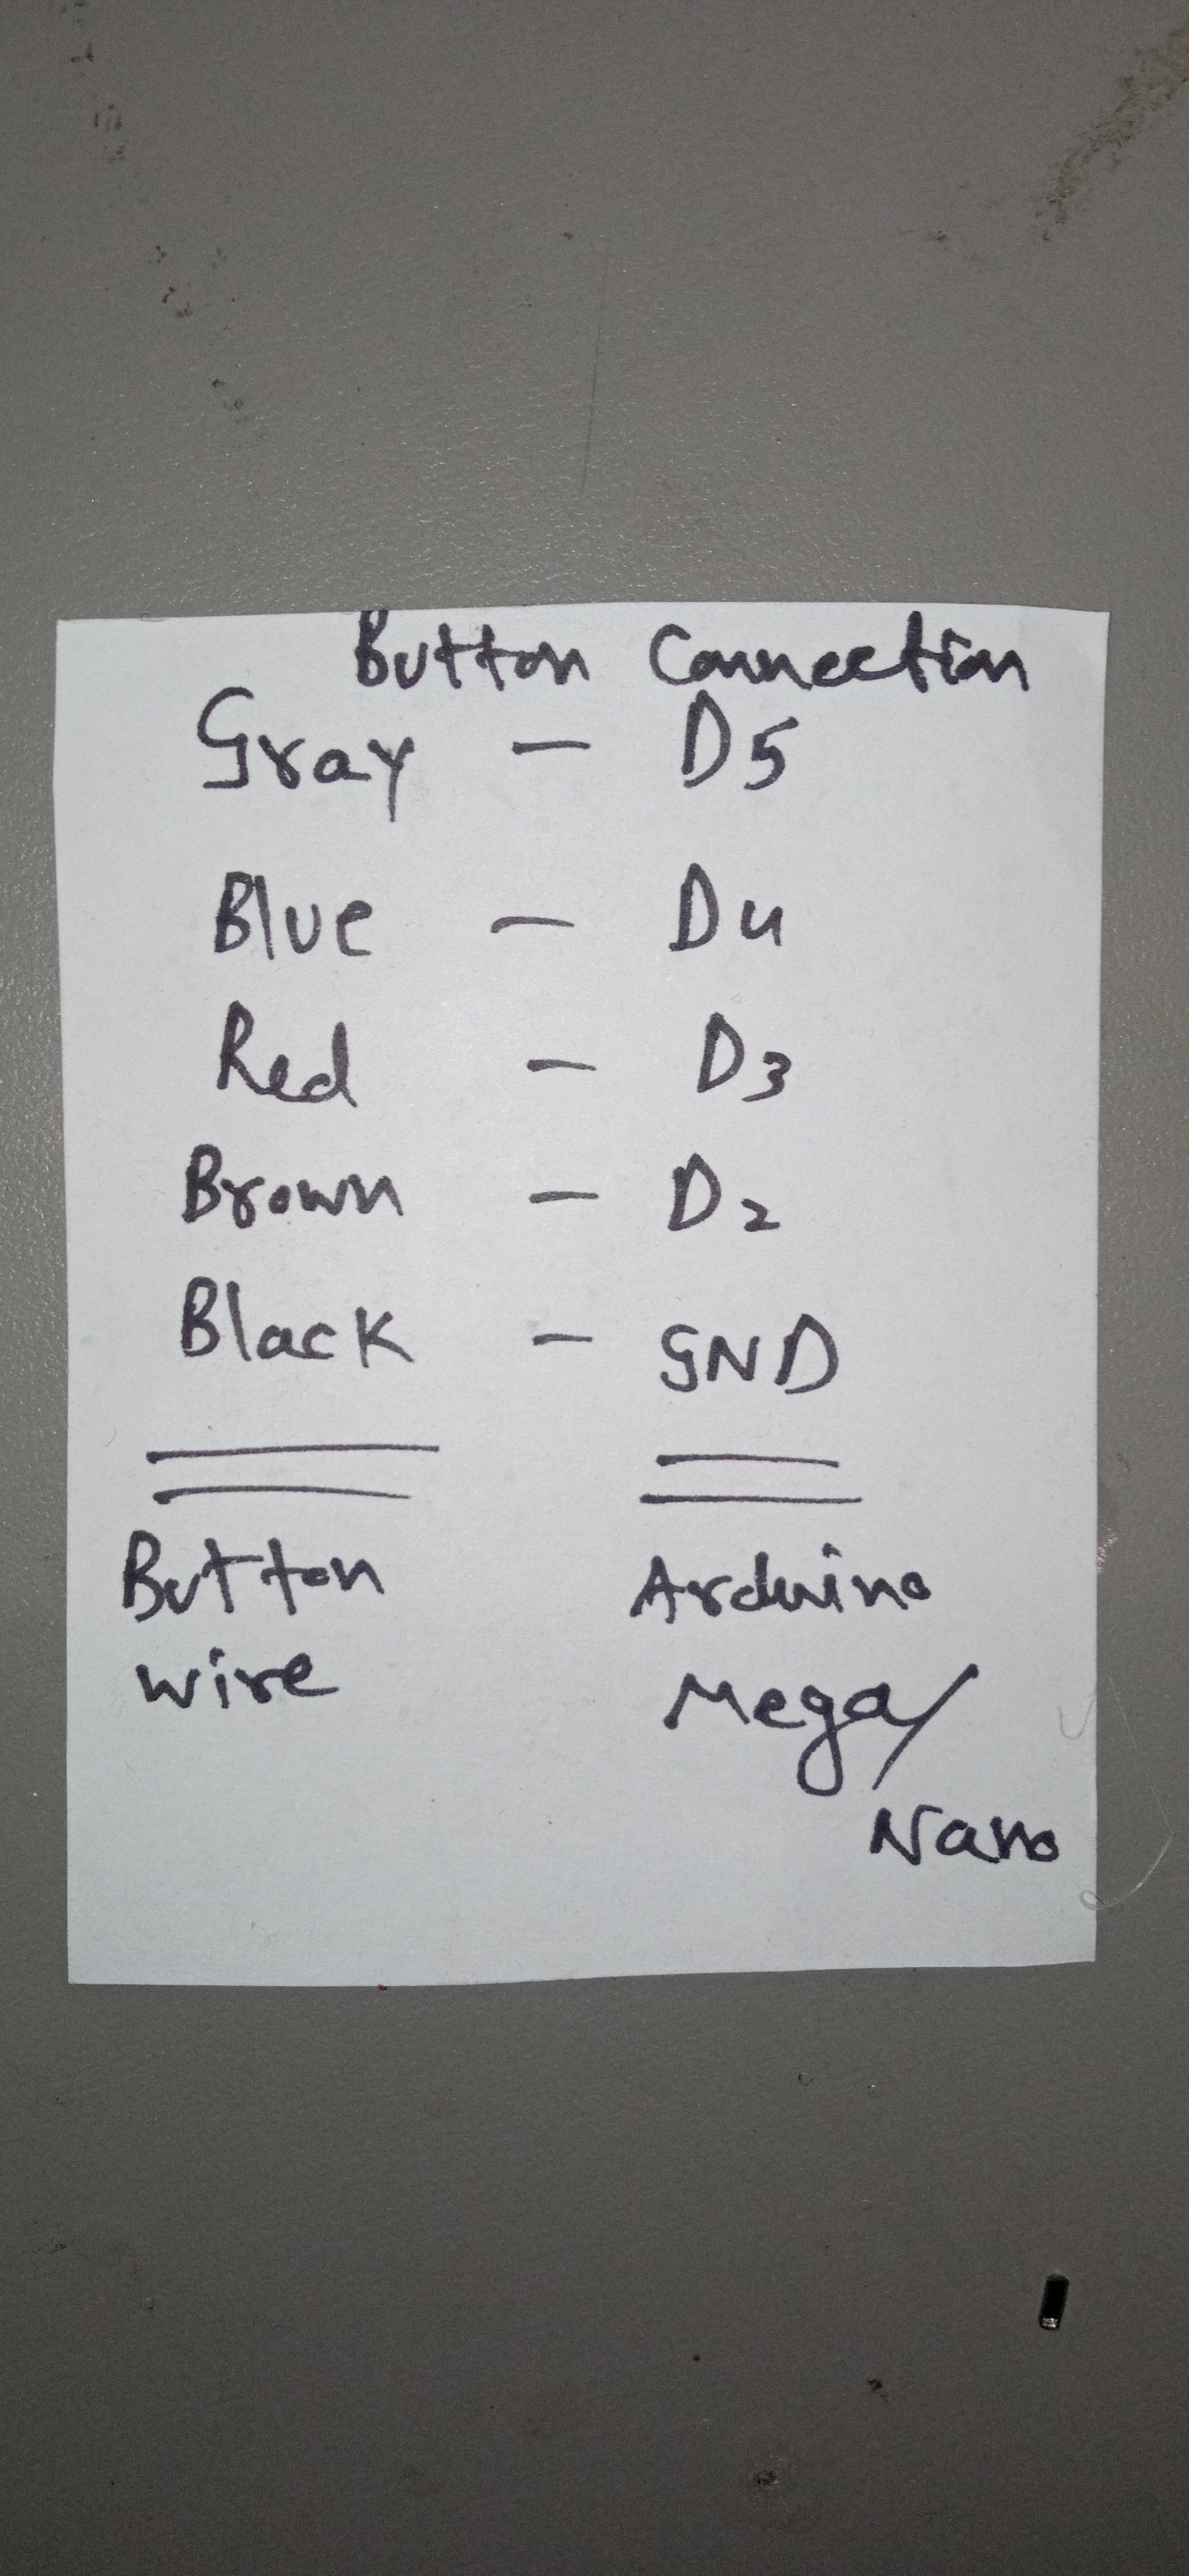 Button Connection
Gray - D5
Blue - D4
Red - D3
Brown - D2
Black - GND
Button Arduino
wire Mega/
Nano